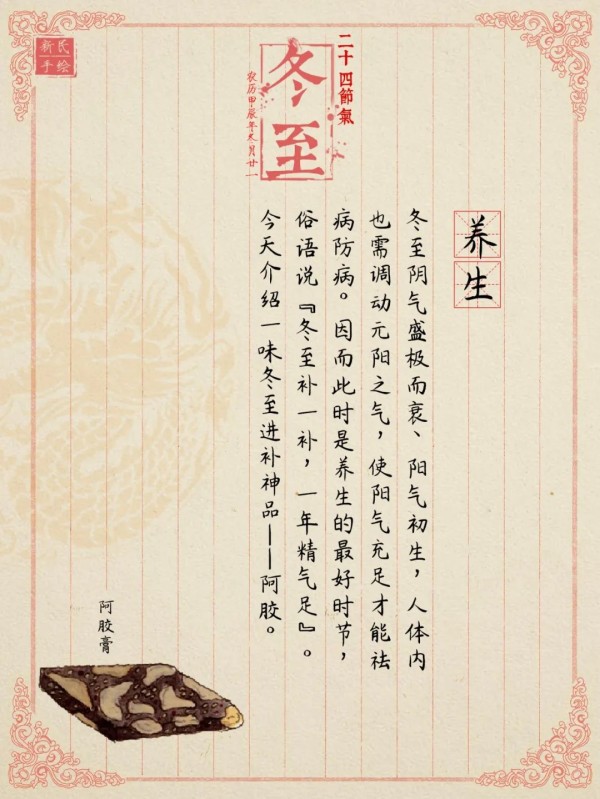 新氏
手绘
二十四節氣
冬至
农历甲辰年冬月廿一
养生
冬至阴气盛极而衰、阳气初生，人体内
也需调动元阳之气，使阳气充足才能祛
病防病。因而此时是养生的最好时节，
俗语说『冬至补一补，一年精气足』。
今天介绍一味冬至进补神品——阿胶。
阿胶膏